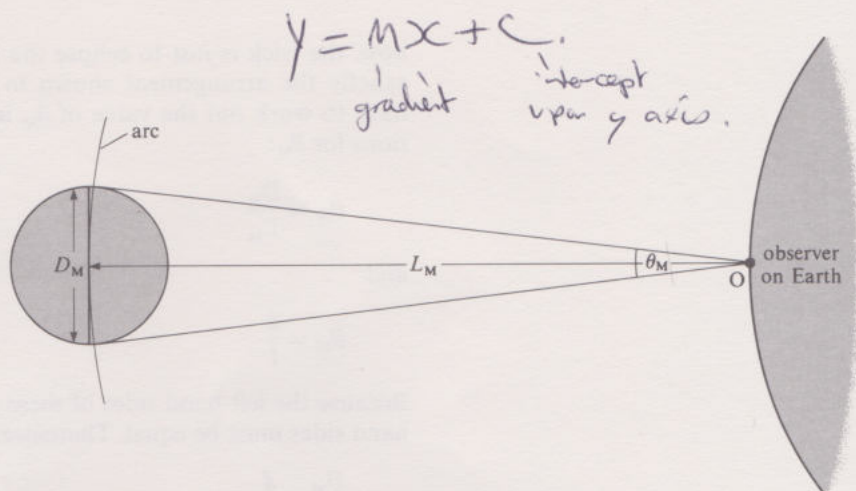 y = mx + c.
gradient
intercept
upon y axis.
arc
D_M
L_M
θ_M
O
observer
on Earth